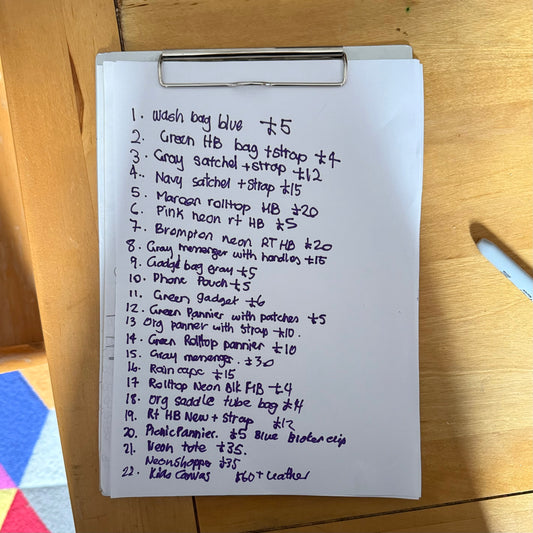 1. Wash bag blue £5
2. Green HB bag + strap £4
3. Gray satchel + strap £12
4. Navy satchel + strap £15
5. Maroon rolltop HB £20
6. Pink neon rt HB £5
7. Brompton neon RT HB £20
8. Gray messenger with handles £15
9. Gadget bag gray £5
10. Phone Pouch £5
11. Green gadget £6
12. Green Pannier with patches £5
13 Org panner with strap £10.
14. Green Rolltop pannier £10
15. Gray messenger. £30
16. Rain cape £15
17 Rolltop Neon Blk HB £4
18. Org saddle tube bag £14
19. Rt HB New + Strap £12
20. Picnic Pannier. £5 Blue Broken clip
21. Neon tote £35.
Neon Shopper £35
22. Kids Canvas £60 + Leather